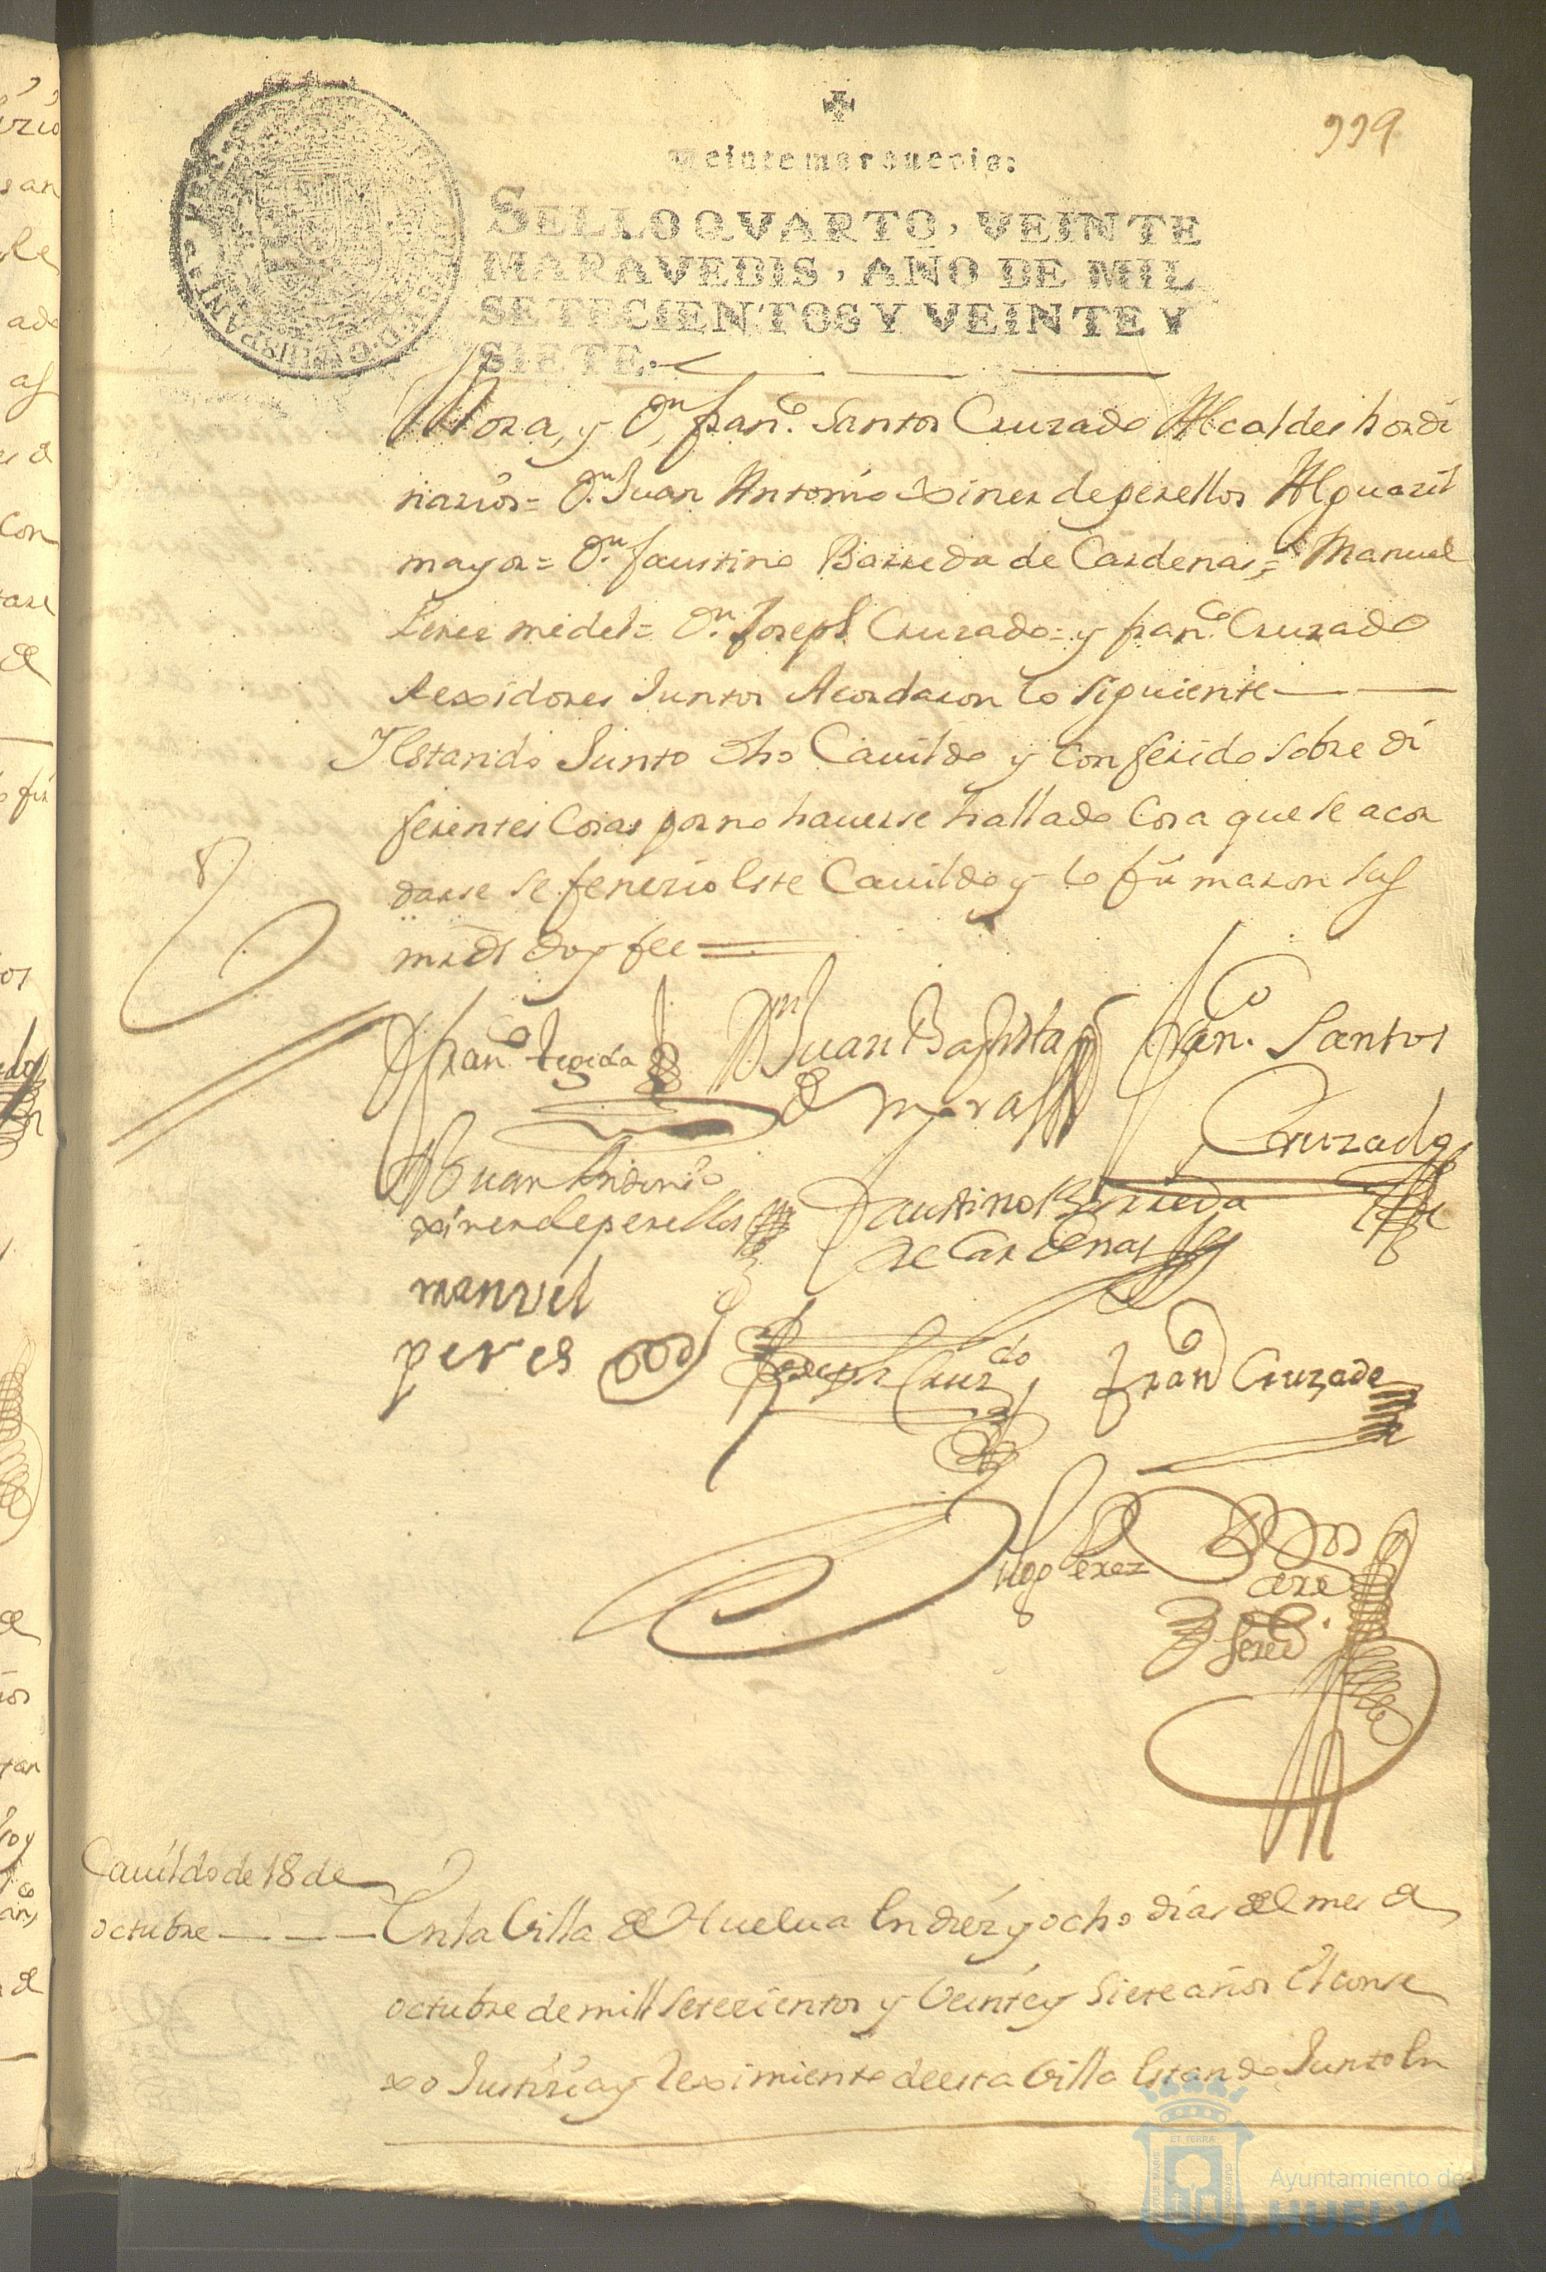 999
Veinte maravedis:
SELLO QVARTO, VEINTE
MARAVEDIS, AÑO DE MIL
SETECIENTOS Y VEINTE Y
SIETE.
Mora, y Dn. franco. Santos Cruzado Alcaldes hordi
narios = Dn. Juan Antonio Ximes de perellos Alguazil
mayor = Dn. faustino Barreda de Cardenas = Manuel
Perez medel = Dn. Joseph Cruzado = y franco. Cruzado
Rexidores Juntos Acordaron lo siguiente
Y Estando Junto dho Cauildo y conferido sobre di
ferentes Cosas por no hauerse hallado Cosa que se acor
darse se fenezio Este Cauildo y lo firmaron sus
mrds doy fee =
franco. tegeda
Dn Juan Baptista
de mora
franco. Santos
Cruzado
Juan Antonio
ximes de perellos
faustino Barreda
de Cardenas
manuel
peres
Joseph Cruzdo
franco Cruzado
Perez
Cauildo de 18 de
octubre
En la Villa de Huelua En diez y ocho dias del mes de
octubre de mill setecientos y Veinte y siete años El conse
xo Justizia y Reximiento de esta Villa Estando Junto En
ET TERRA
Ayuntamiento de
HUELVA